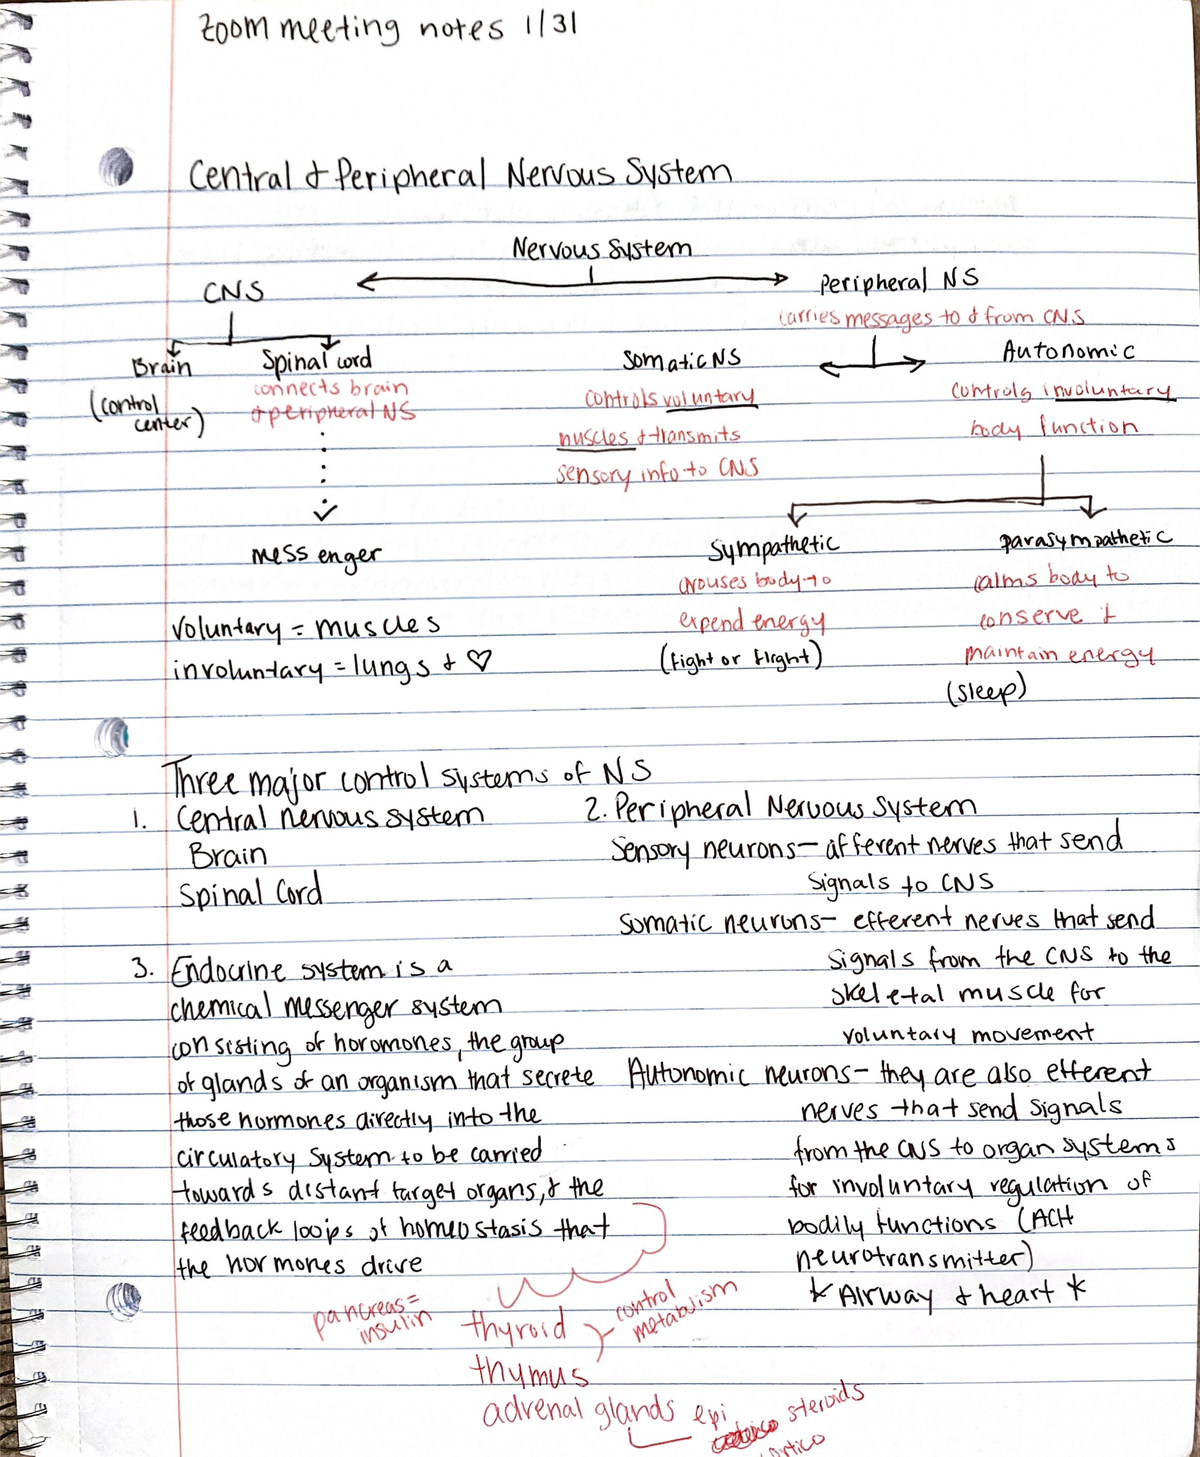 Zoom meeting notes 1/31
Central & Peripheral Nervous System
Nervous System
CNS
Peripheral NS
carries messages to & from CNS
Brain
(control
center)
Spinal cord
connects brain
& peripheral NS
messenger
Somatic NS
controls voluntary
muscles & transmits
sensory info to CNS
Autonomic
controls involuntary
body function
Sympathetic
arouses body to
expend energy
(fight or flight)
parasympathetic
calms body to
conserve &
maintain energy
(sleep)
voluntary = muscles
involuntary = lungs & ♡
Three major control systems of NS
1. Central nervous system
Brain
Spinal Cord
2. Peripheral Nervous System
Sensory neurons - afferent nerves that send
signals to CNS
Somatic neurons - efferent nerves that send
signals from the CNS to the
skeletal muscle for
voluntary movement
Autonomic neurons - they are also efferent
nerves that send signals
from the CNS to organ systems
for involuntary regulation of
bodily functions (ACH
neurotransmitter)
* Airway & heart *
3. Endocrine system is a
chemical messenger system
consisting of horomones, the group
of glands of an organism that secrete
those hormones directly into the
circulatory system to be carried
towards distant target organs, & the
feedback loops of homeostasis that
the hormones drive
pancreas =
insulin
thyroid
thymus
control
metabolism
adrenal glands epi
steroids
cortico